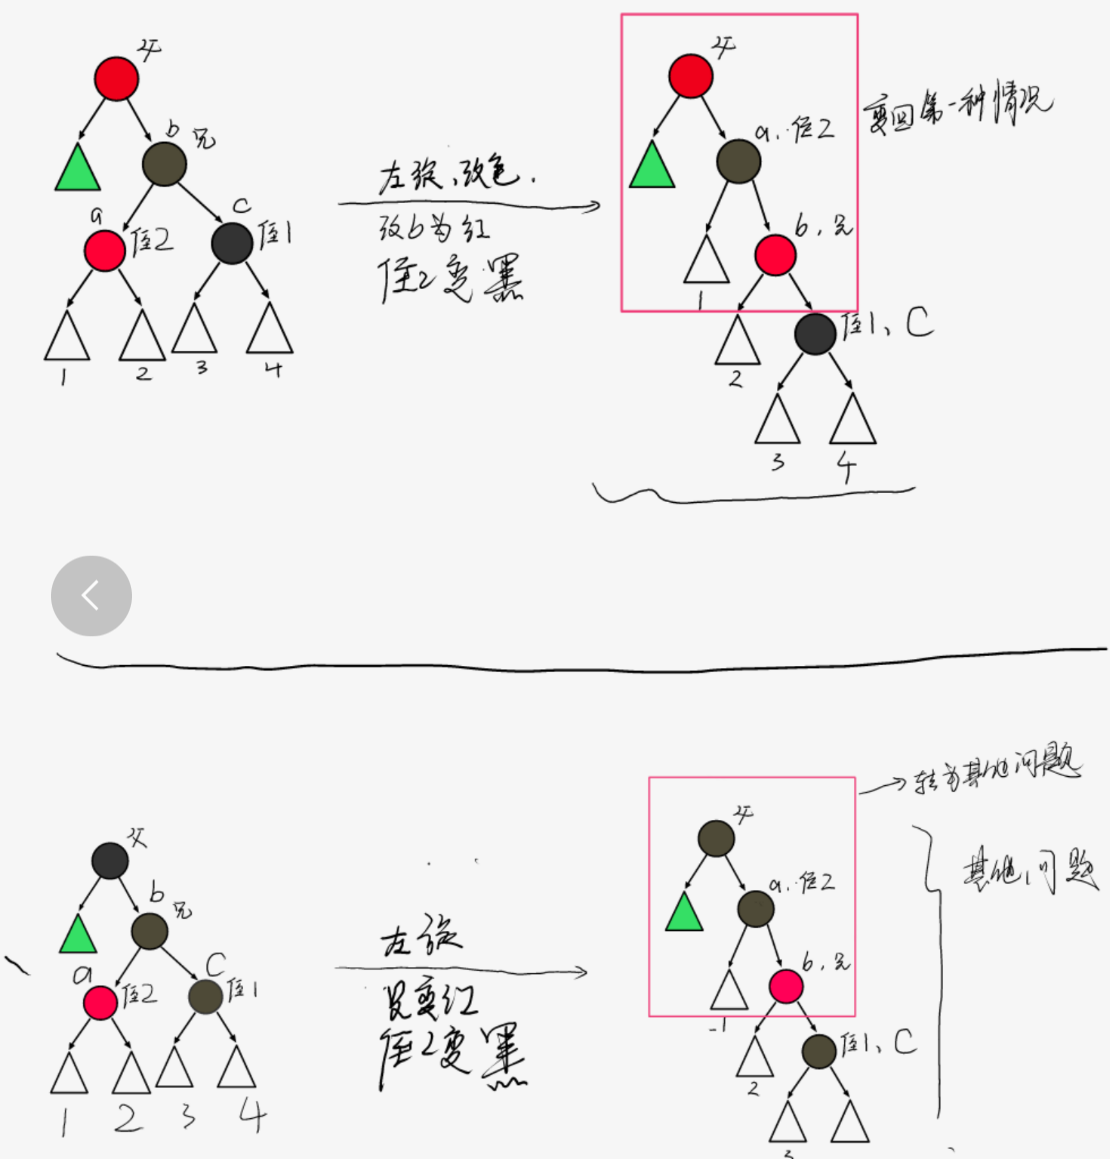 父
b 兄
a 侄2
c 侄1
1 2 3 4
左旋、改色.
改b为红
侄2变黑
父
a. 侄2
b, 兄
1
侄1、C
2
3 4
变回第一种情况
父
b 兄
a 侄2
C 侄1
1 2 3 4
左旋
兄变红
侄2变黑
父
a. 侄2
b, 兄
1
侄1、C
2
3
转为其他问题
其他问题